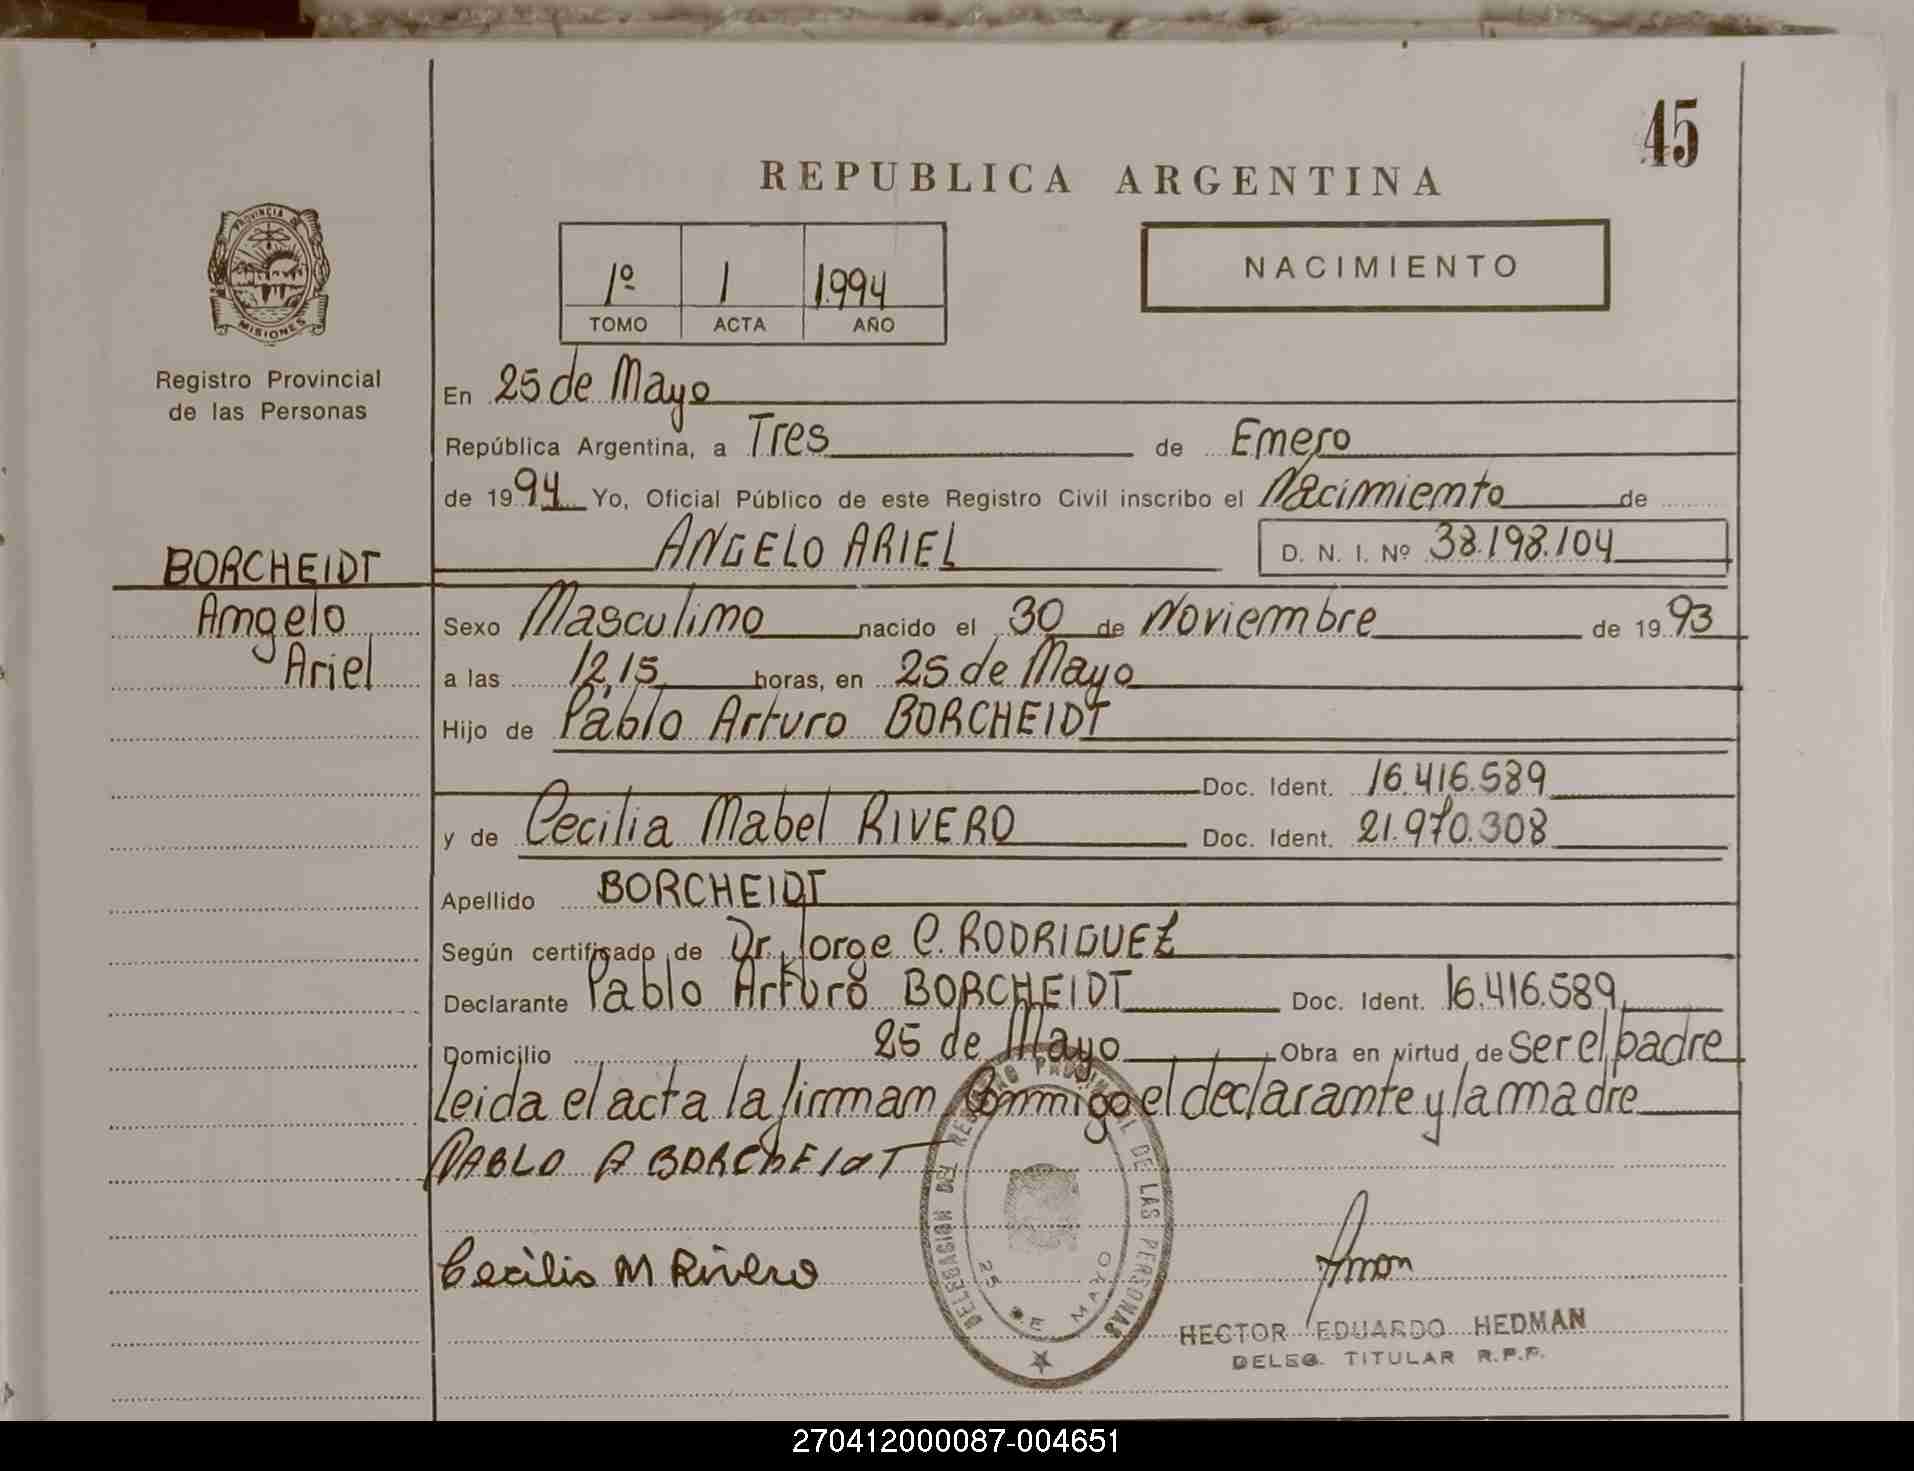 45
REPUBLICA ARGENTINA
PROVINCIA DE
MISIONES
Registro Provincial
de las Personas
1º 1 1.994
TOMO ACTA AÑO
NACIMIENTO
En 25 de Mayo
República Argentina, a Tres de Enero
de 1994 Yo, Oficial Público de este Registro Civil inscribo el Nacimiento de
BORCHEIDT
Angelo
Ariel
ANGELO ARIEL D. N. I. Nº 38.198.104
Sexo Masculino nacido el 30 de Noviembre de 1993
a las 12,15 horas, en 25 de Mayo
Hijo de Pablo Arturo BORCHEIDT
Doc. Ident. 16.416.589
y de Cecilia Mabel RIVERO Doc. Ident. 21.970.308
Apellido BORCHEIDT
Según certificado de Dr. Jorge C. RODRIGUEZ
Declarante Pablo Arturo BORCHEIDT Doc. Ident. 16.416.589
Domicilio 25 de Mayo Obra en virtud de ser el padre
Leida el acta la firman Conmigo el declarante y la madre
PABLO A BORCHEIDT
Cecilia M Rivero
DELEGACION DEL REGISTRO PROVINCIAL DE LAS PERSONAS
25 DE MAYO
HECTOR EDUARDO HEDMAN
DELEG. TITULAR R.P.P.
270412000087-004651